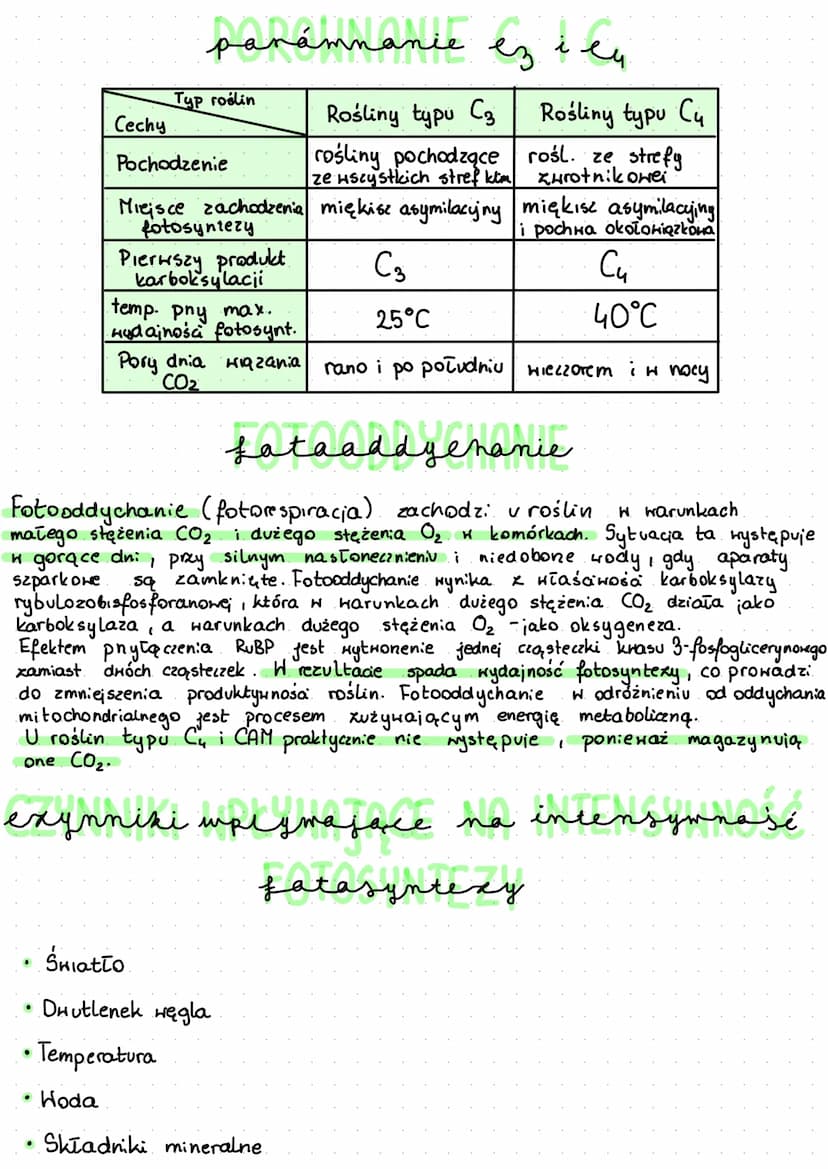 porównanie C3 i C4
Typ roślin
Cechy
Rośliny typu C3
Rośliny typu C4
Pochodzenie
rośliny pochodzące
ze wszystkich stref klim
rośl. ze strefy
zwrotnikowei
Miejsce zachodzenia
fotosyntezy
miękisz asymilacyjny
miękisz asymilacyjny
i pochwa okołowiązkowa
Pierwszy produkt
karboksylacji
C3
C4
temp. przy max.
wydajności fotosynt.
25°C
40°C
Pory dnia wiązania
CO2
rano i po południu
wieczorem i w nocy
fotooddychanie
Fotooddychanie (fotorespiracja) zachodzi u roślin w warunkach
małego stężenia CO2 i dużego stężenia O2 w komórkach. Sytuacja ta występuje
w gorące dni, przy silnym nasłonecznieniu i niedoborze wody, gdy aparaty
szparkowe są zamknięte. Fotooddychanie wynika z właściwości karboksylazy
rybulozobisfosforanowej, która w warunkach dużego stężenia CO2 działa jako
karboksylaza, a warunkach dużego stężenia O2 -jako oksygeneza.
Efektem przyłączenia RuBP jest wytworzenie jednej cząsteczki kwasu 3-fosfoglicerynowego
zamiast dwóch cząsteczek. W rezultacie spada wydajność fotosyntezy, co prowadzi
do zmniejszenia produktywności roślin. Fotooddychanie w odróżnieniu od oddychania
mitochondrialnego jest procesem zużywającym energię metaboliczną.
U roślin typu C4 i CAM praktycznie nie występuje, ponieważ magazynują
one CO2.
czynniki wpływające na intensywność
fotosyntezy
• Światło
• Dwutlenek węgla
• Temperatura
• Woda
• Składniki mineralne